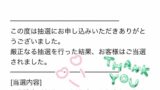 この度は抽選にお申し込みいただきありがと
うございました。
厳正なる抽選を行った結果、お客様はご当選
されました。
THANK YOU
[当選内容]